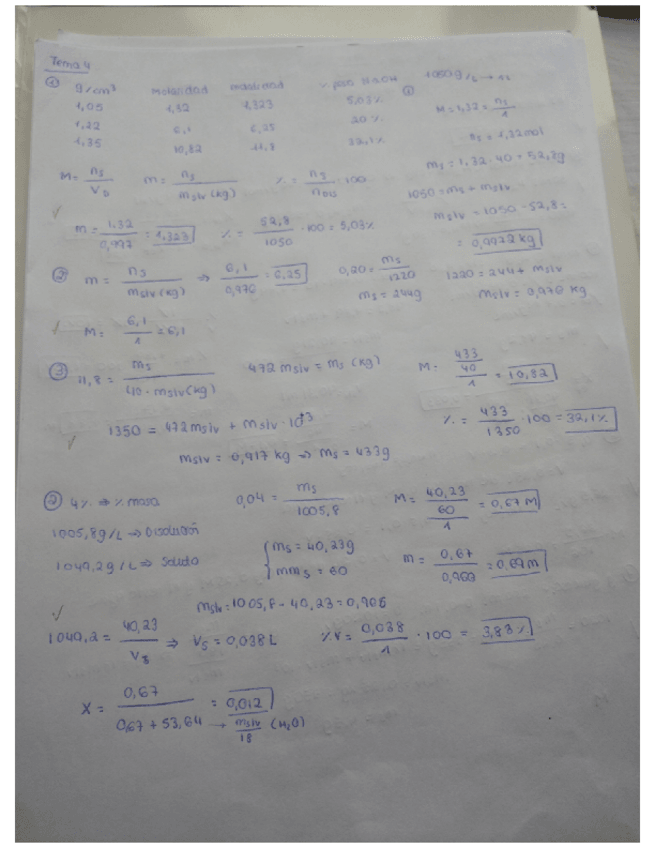 Tema 4
① g/cm³ Molaridad molalidad % peso NaOH
1,05 1,32 1,323 5,03%
1,22 6,1 6,25 20%
1,35 10,82 11,8 32,1%
① 1050 g/L → 1L
M = 1,32 = ns/1
ns = 1,32 mol
ms = 1,32 · 40 = 52,8g
1050 = ms + mslv
mslv = 1050 - 52,8 =
= 0,9972 kg
M = ns/VD m = ns/mslv (kg) % = ns/ · 100
✓ m = 1,32/0,997 = 1,323 % = 52,8/1050 · 100 = 5,03%
② m = ns/mslv (kg) ⇒ 6,1/0,976 = 6,25 0,20 = ms/1220 1220 = 244 + mslv
ms = 244g mslv = 0,976 kg
✓ M = 6,1/1 = 6,1
③ 11,8 = ms/40 · mslv (kg) 472 mslv = ms (kg) M = 433/40/1 = 10,82
✓ 1350 = 472 mslv + mslv · 10³ % = 433/1350 · 100 = 32,1%
mslv = 0,917 kg ⇒ ms = 433g
② 4% ⇒ % masa 0,04 = ms/1005,8 M = 40,23/60/1 = 0,67 M
1005,8 g/L ⇒ Disolución
1049,2 g/L ⇒ Soluto { ms = 40,23g m = 0,67/0,969 = 0,69 m
mms = 60
✓ mslv = 1005,8 - 40,23 = 0,966
1049,2 = 40,23/Vs ⇒ Vs = 0,038 L %V = 0,038/1 · 100 = 3,83%
X = 0,67/0,67 + 53,64 = 0,012
→ mslv/18 (H₂O)